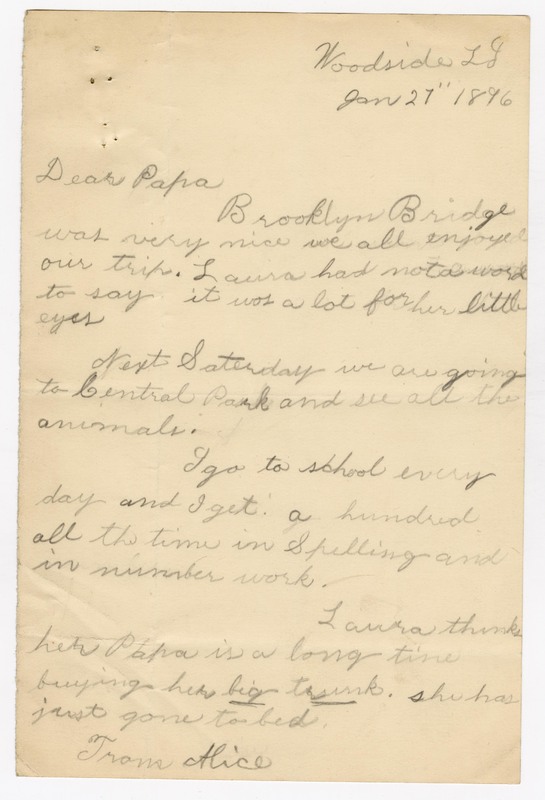 Woodside L I
Jan 27" 1896
Dear Papa
Brooklyn Bridge
was very nice we all enjoyed
our trip. Laura had not a word
to say it was a lot for her little
eyes
Next Saterday we are going
to Central Park and see all the
animals.
I go to school every
day and I get a hundred
all the time in Spelling and
in number work.
Laura thinks
her Papa is a long time
buying her big trunk. she has
just gone to bed.
From Alice